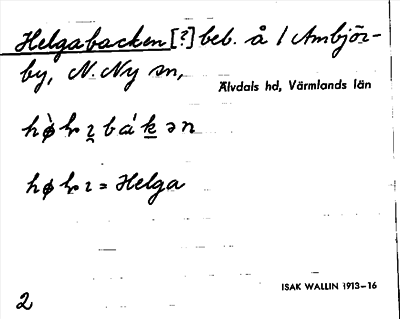 Helgabacken [?] beb. å 1 Ambjör-
by, N. Ny sn,
Älvdals hd, Värmlands län
= Helga
ISAK WALLIN 1913–16
2